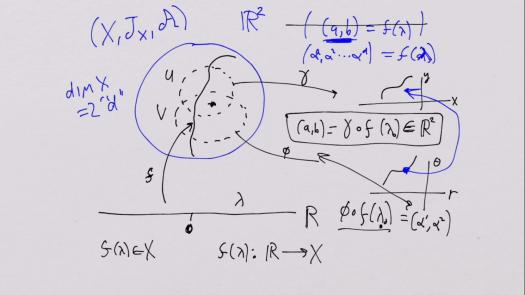 (X, J_X, A)
ℝ²
( (a,b) = f(λ) )
(α¹, α² ⋯ αᵈ) = f(λ)
dim X
= 2 "d"
U
V
γ
y
x
(a,b) = γ∘f(λ₀) ∈ ℝ²
f
ϕ
θ
r
λ
ℝ
0
ϕ∘f(λ₀) = (α¹, α²)
f(λ) ∈ X
f(λ): ℝ → X